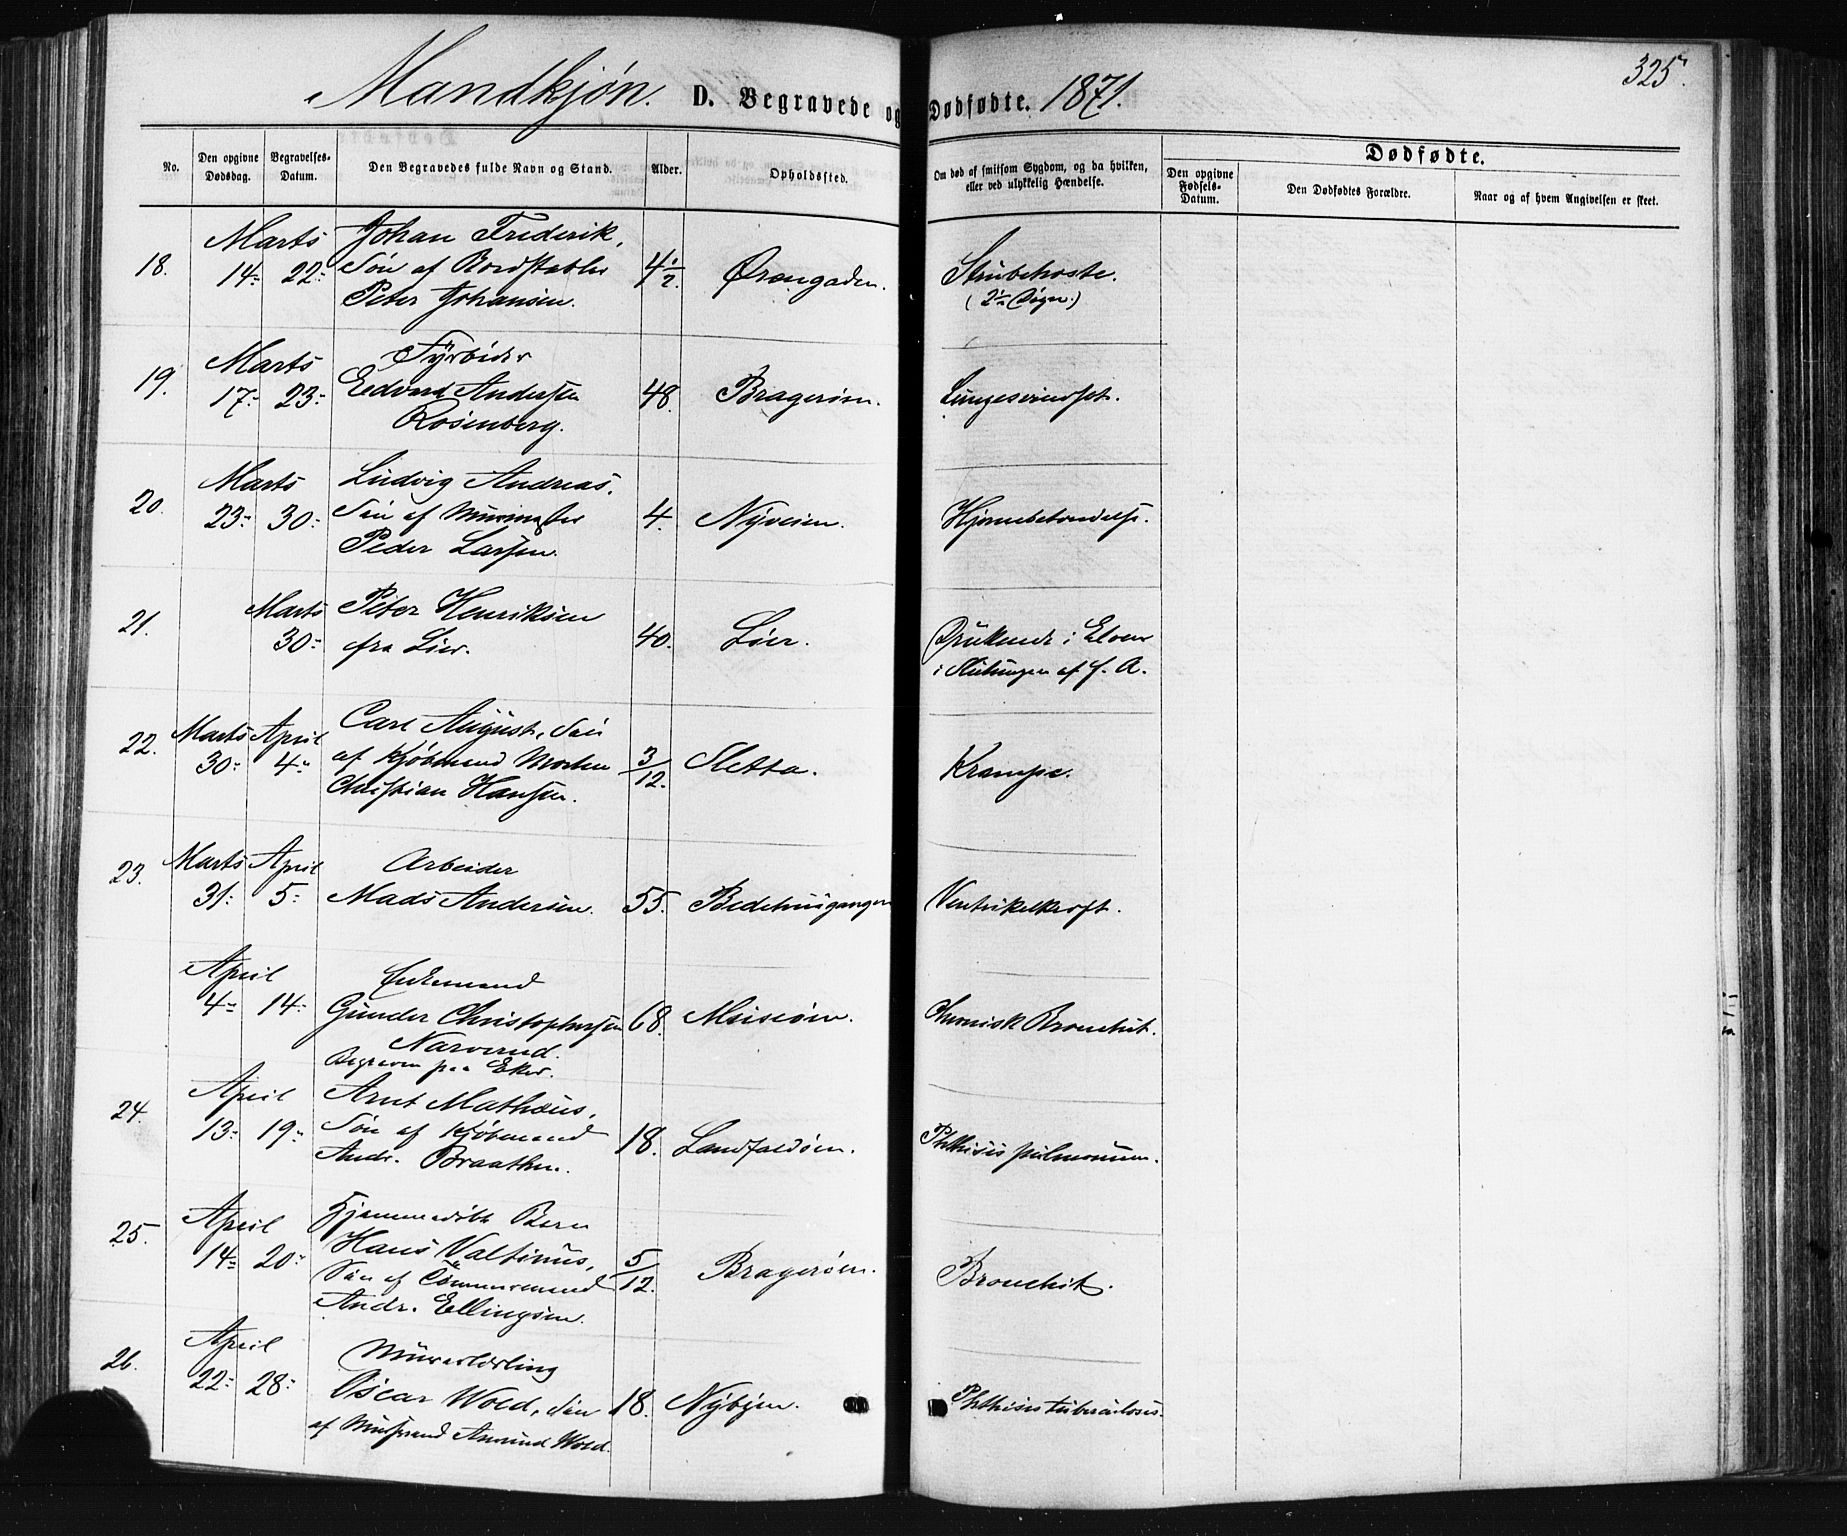 325.
Mandkjøn. D. Begravede og Dødfødte. 1871.
No.
Den opgivne Dødsdag.
Begravelses-Datum.
Den Begravedes fulde Navn og Stand.
Alder.
Opholdssted.
Om død af smitsom Sygdom, og da hvilken, eller ved ulykkelig Hændelse.
Dødfødte.
Den opgivne Fødsels-Datum.
Den Dødfødtes Forældre.
Naar og af hvem Angivelsen er skeet.
Marts Johan Frederik,
18. 14 22 Søn af Bordstabler 4 1/2 Ørengaden. Strubehoste.
Peter Johansen. (2 1/2 Døgn.)
Marts Fyrbøder
19. 17 23 Edvard Andersen 48. Bragerøen. Lungesvindsot.
Rosenberg.
Marts Ludvig Andreas,
20. 23 30 Søn af Murmester 4. Nyveien. Hjernebetændelse.
Peder Larsen.
Marts Peter Henriksen
21. 30 fra Lier. 40. Lier. Druknede i Elven
i Slutningen af f. A.
Marts April Carl August, Søn
22. 30 4 af Kjøbmand Morten 3/12. Sletta. Krampe.
Christian Hansen.
Marts April Arbeider
23. 31 5 Mads Andersen. 55. Bedehusgangen Ventrikelkræft.
April Enkemand
4 14 Gunder Christophersen 68. Meierøen. Chronisk Bronchit.
Narverud.
Begraven paa Eker.
April Arnt Mathæus,
24. 13 19 Søn af Kjøbmand 18. Landfaldøen. Phthisis pulmonum.
Andr. Braathen.
April Hjemmedøbt Barn
25. 14 20 Hans Valtinus, 5/12. Bragerøen. Bronchit.
Søn af Tømmermand
Andr. Ellingsen.
April Murerlærling
26. 22 28 Oscar Wold, Søn 18. Nybyen. Phthisis tuberculosis.
af Amund Wold.